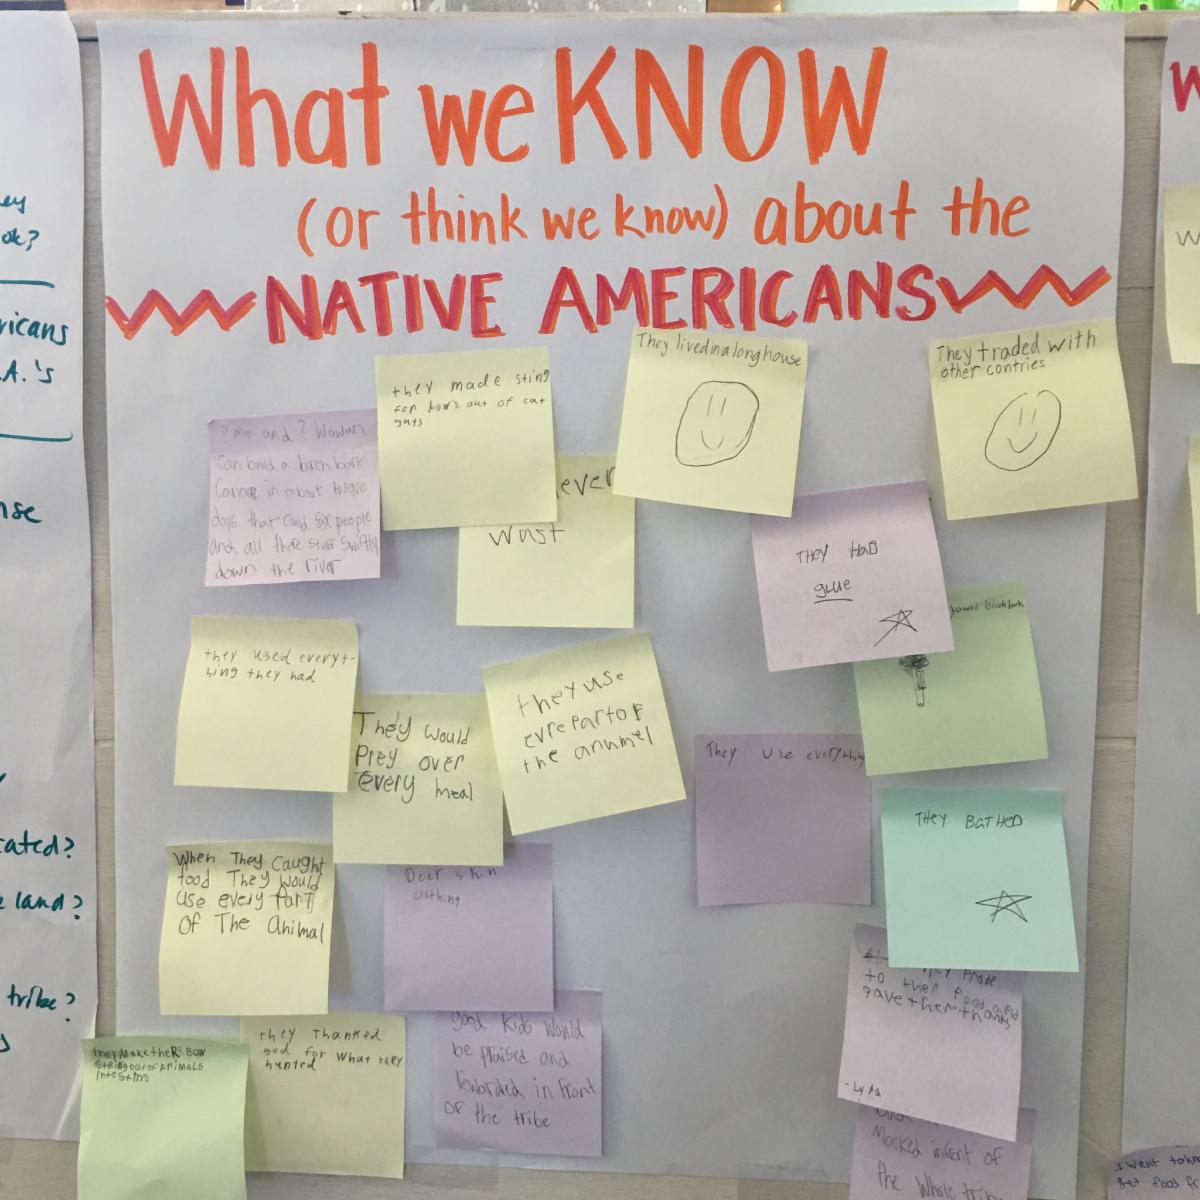 What we KNOW
(or think we know) about the
NATIVE AMERICANS
They lived in a longhouse
They traded with
other contries
they made sting
for bow's out of cat
guts
? Mon and ? Wowan
Can build a birch bark
Canoe in about twelve
days that could six people
and all there stuff swiftly
down the river
ever
wast
THEY HAD
glue
birchbark
they used everyt-
hing they had
They would
Prey over
Every meal
they use
evre part of
the anumel
They use everything
THEY BATHED
When They Caught
food They would
use every Part
Of The animal
Deer skin
clothing
they Prade
to ther food and
gave ther thanks
- Lyda
they Make theR BOW
StRing out of ANiMALS
intestins
they Thanked
god for what they
hunted
good kids would
be praised and
rewarded in front
of the tribe
Mocked infront of
the Whole tribe
ey
ok?
ricans
.A.'s
nse
cated?
e land?
tribe?
s
W
W
I want to kn
get food fr